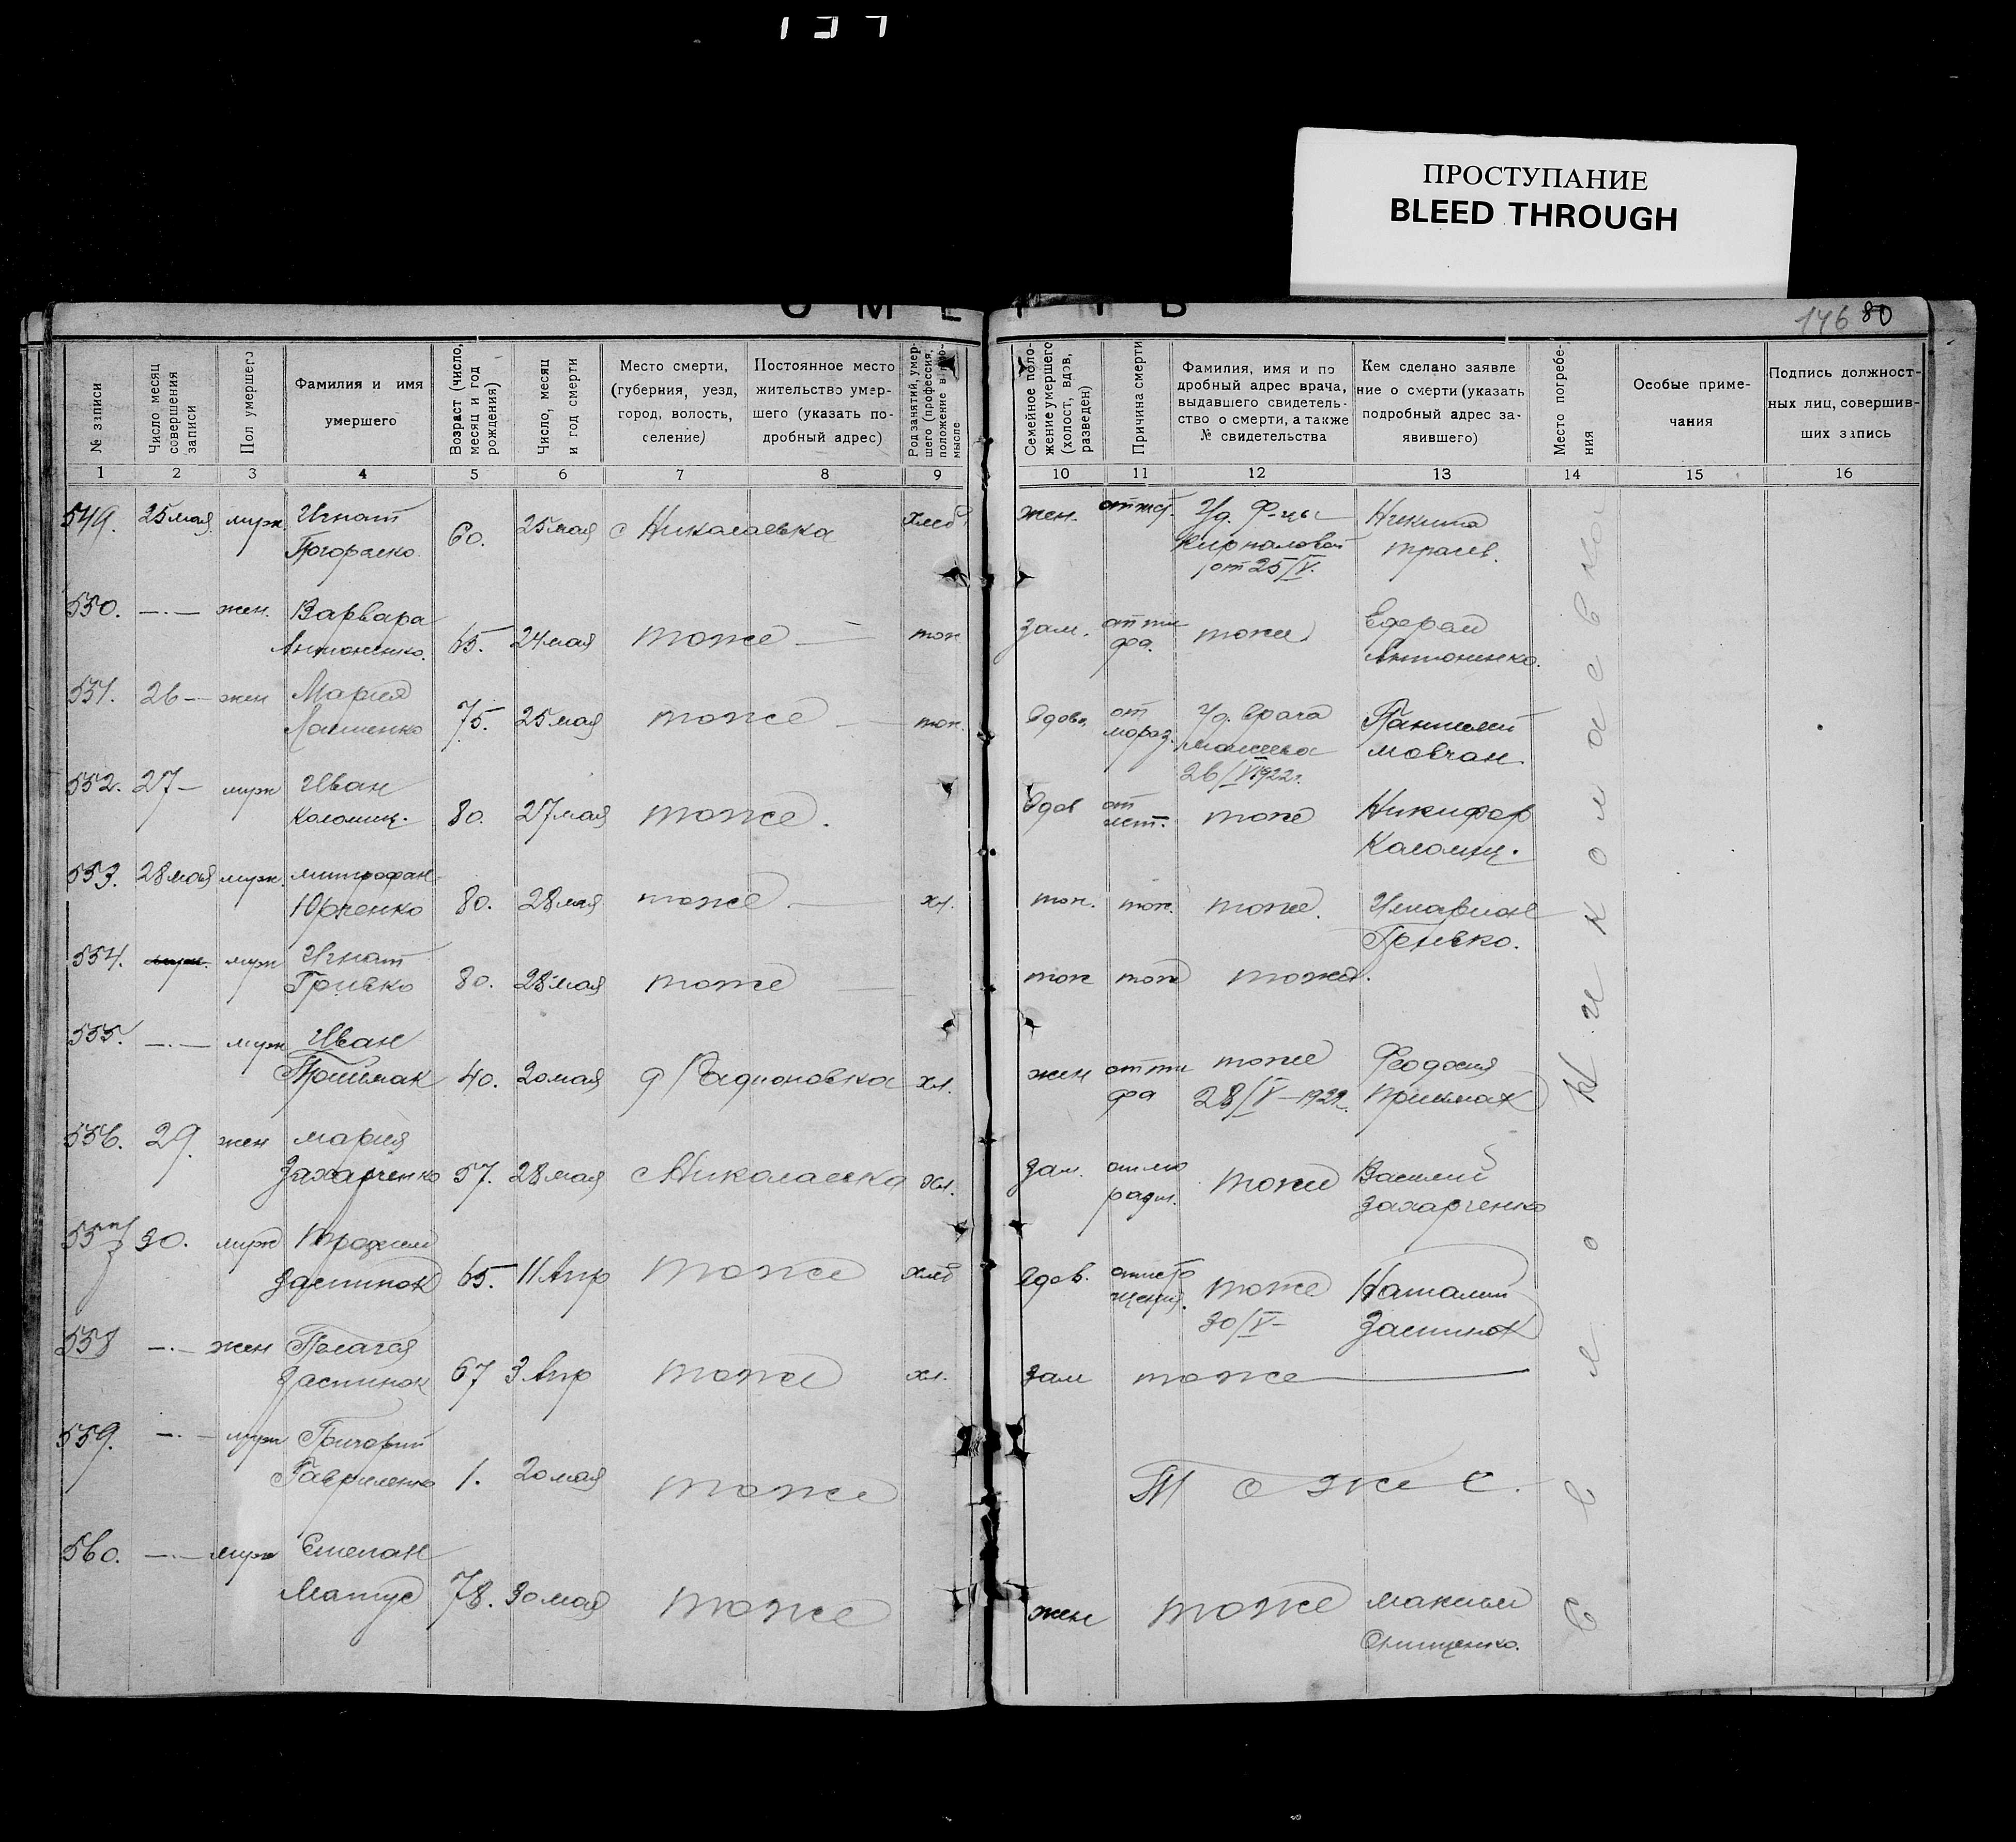 ПРОСТУПАНИЕ
BLEED THROUGH
146 80
№ записи
Число месяц совершения записи
Пол умершего
Фамилия и имя умершего
Возраст (число, месяц и год рождения)
Число, месяц и год смерти
Место смерти, (губерния, уезд, город, волость, селение)
Постоянное место жительство умершего (указать подробный адрес)
Род занятий, умершего (профессия, положение в промысле
Семейное положение умершего (холост, вдов, разведен)
Причина смерти
Фамилия, имя и подробный адрес врача, выдавшего свидетельство о смерти, а также № свидетельства
Кем сделано заявление о смерти (указать подробный адрес заявившего)
Место погребения
Особые примечания
Подпись должностных лиц, совершивших запись
1 2 3 4 5 6 7 8 9 10 11 12 13 14 15 16
549. 25 мая муж Игнат 60. 25 мая с Николаевка хлеб жен. Уд. Ф-цы Никита
от 25/V.
550. —.— жен. Варвара Антоненко. 65. 24 мая тоже — тож зам. от тифа. тоже Антоненко.
551. 26 — жен Мария 75. 25 мая тоже — тож. вдова Уд. врача мовчан.
26/V 1922 г.
552. 27 — муж Иван Коломиц. 80. 27 мая тоже. вдов тоже Никифор Коломиц.
553. 28 мая муж. митрофан Юрченко 80. 28 мая тоже. — хл. тож. тож. тоже. Илларион Гривко.
554. муж Игнат Гривко 80. 28 мая тоже — тож тож тоже.
555. —.— муж Иван Приймак 40. 20 мая д Радионовка хл. жен от тифа тоже 28/V — 1922 г. Феодосия Приймак
556. 29. жен мария Захарченко 57. 28 мая с Николаевка хл. зам. тоже Василий Захарченко
557 30. муж Трофим Заспинок 65. 11 Апр тоже хлеб вдов. тоже 30/V — Наталия Заспинок
558 —.— жен Пелагея Заспинок 67 3 Апр тоже хл. зам тоже —
559. —.— муж Григорий Гавриленко 1. 20 мая тоже Тоже.
560. —.— муж Степан Матус 78. 30 мая тоже жен тоже максим Онищенко.
Село Николаевка